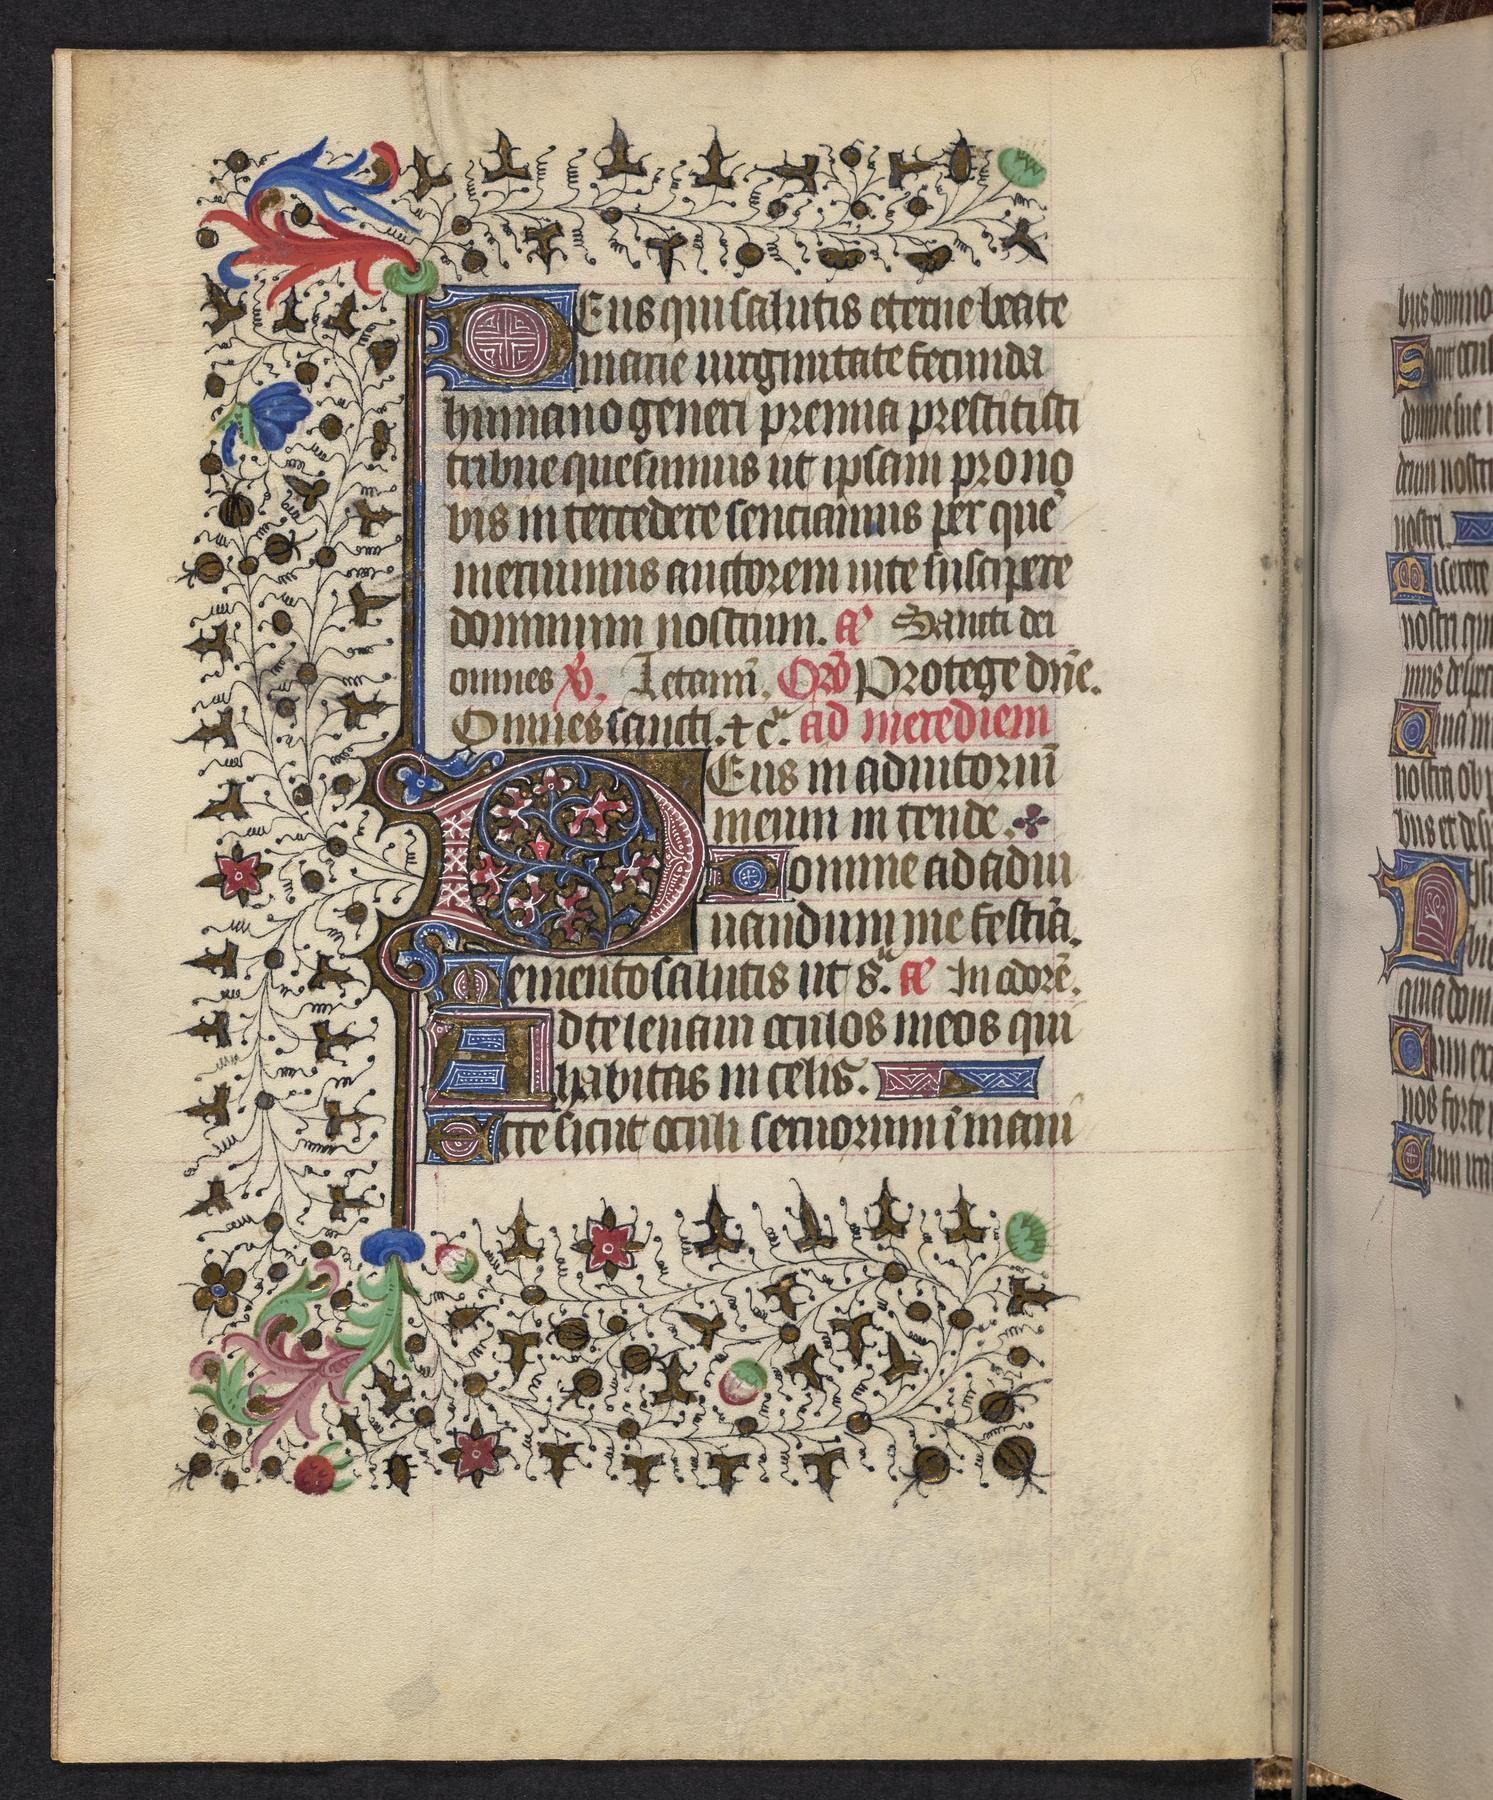 Deus qui salutis eterne beate
marie uirginitate fecunda
humano generi premia prestitisti
tribue quesumus ut ipsam pro no
bis intercedere senciamus per quē
meruimus auctorem uite suscipere
dominum nostrum. a͞ Sancti dei
omnes v̄. Letamī. Orō Protege dn̄e.
Omnes sancti. + c̄. ad meridiem
Deus in adiutoriū
meum intende.
Domine ad adiu
uandum me festīa.
Memento salutis ut s̄. a͞ In odorē.
Ad te leuaui oculos meos qui
habitas in celis.
Ecce sicut oculi seruorum ī mani
bus domino
Sicut ocul
domine sue
deum nostr
nostri.
Miserere
nostri qui
mus despec
Quia m
nostra ob p
bus et desp
Nisi
bis
quia dom
Cum ex
nos forte
Cum ira